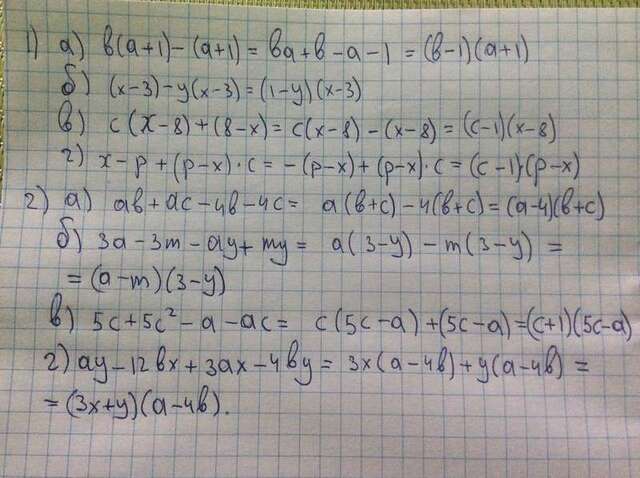 1) а) в(а+1)-(а+1) = ва+в-а-1 = (в-1)(а+1)
б) (x-3)-y(x-3)=(1-y)(x-3)
в) c(x-8)+(8-x)=c(x-8)-(x-8)=(c-1)(x-8)
г) x-p+(p-x)·c=-(p-x)+(p-x)·c=(c-1)(p-x)
2) а) ав+ac-4в-4c= a(в+c)-4(в+c)=(a-4)(в+c)
б) 3a-3m-ay+my= a(3-y)-m(3-y)=
=(a-m)(3-y)
в) 5c+5c²-a-ac= c(5c-a)+(5c-a)=(c+1)(5c-a)
г) ay-12вx+3ax-4вy= 3x(a-4в)+y(a-4в)=
=(3x+y)(a-4в).